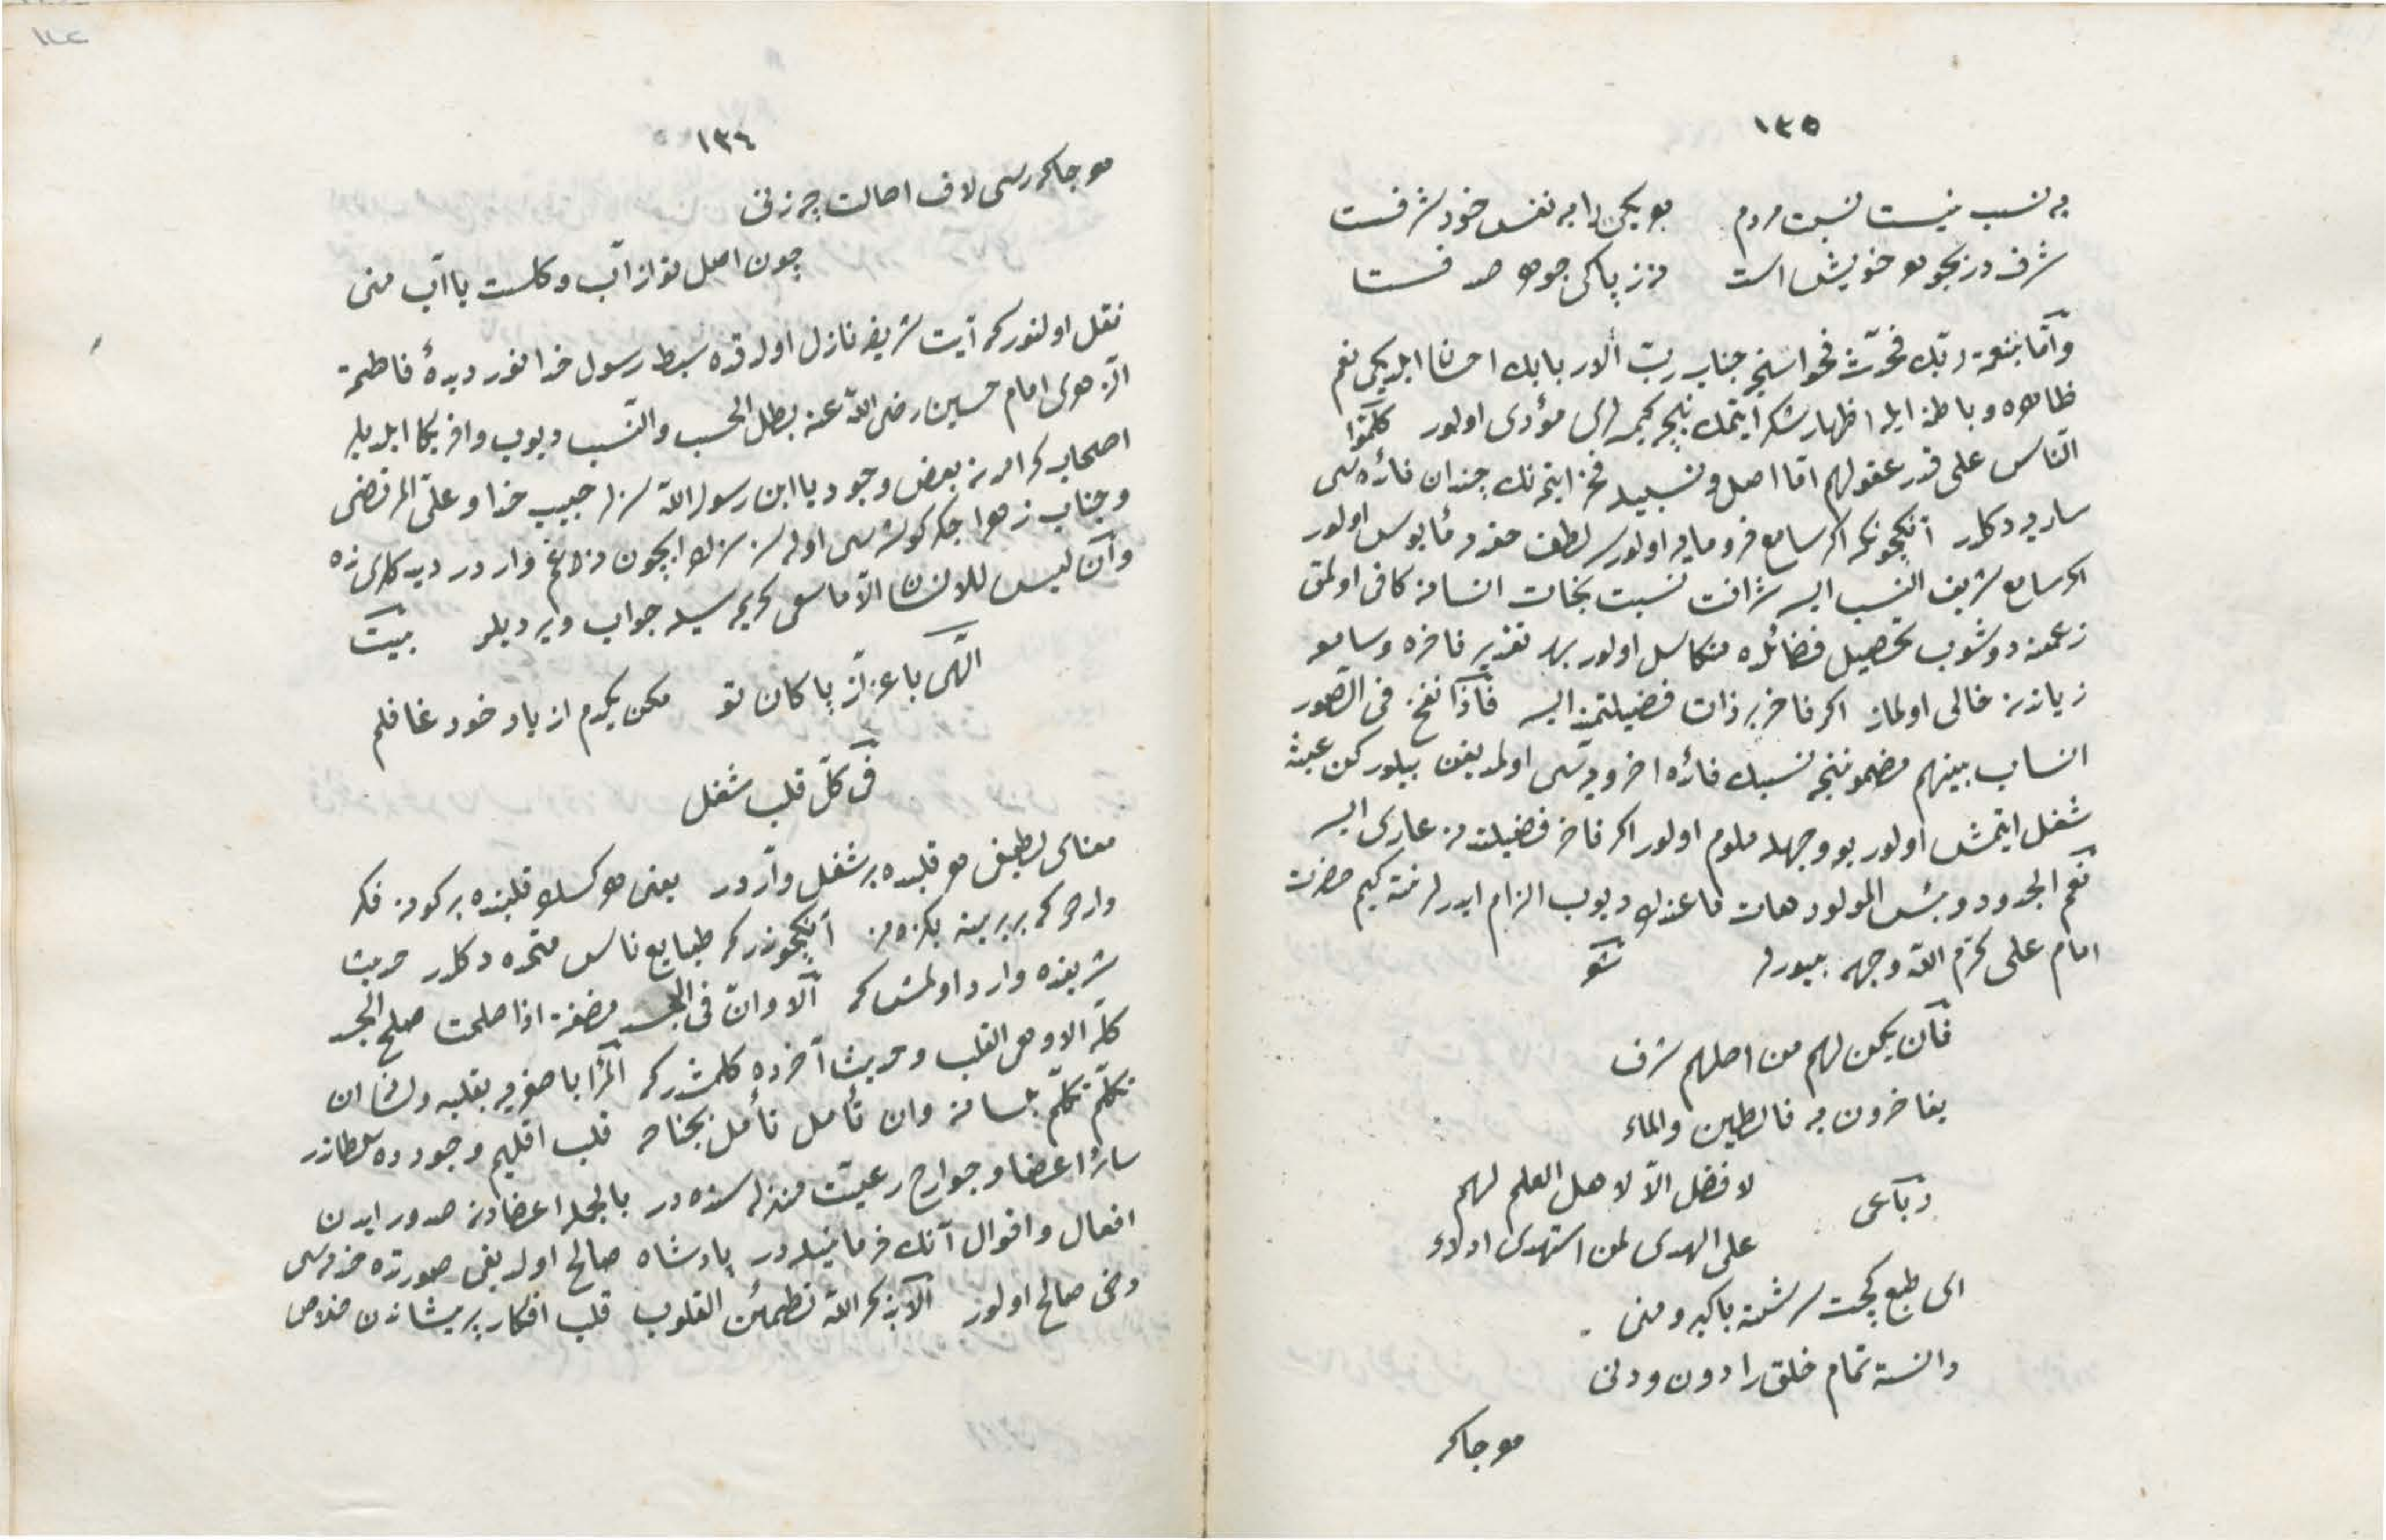 ١٣٥
به نسب نیست نسبت مردم هر یکی را به نفس خود شرفست
شرف در بجوهر خویش است در ز پاکی جوهر صدفست
وأمّا بنعمة ربّك فحدّث فحواسنجه جناب ربّ الاربابك احسان ايلديكى نعم
ظاهره و باطنه ايله اظهار شكر ايتمك نيچه كيمسه لرى مؤدى اولور كلّموا
النّاس على قدر عقولهم امّا اصل و نسبيله فخر ايتمه نك چندان فائده سى
ساريه دكلدر آنكچونكه اكر سامع فرومايه اولورسه لطف حقدن مأيوس اولور
اكر سامع شريف النسب ايسه شرافت نسبت نجات انسانه كافى اولمق
زعمنه دوشوب تحصيل فضائلده متكاسل اولور بهر تقدير فاخره و سامعه
زياندن خالى اولماز اكر فاخر بر ذات فضيلتمند ايسه فاذا نفخ فى الصّور
انساب بينهم مضموننجه نسبك فائده اخرويه سى اولمديغن بيلوركن عبثه
شغل ايتمش اولور بو وجهله ملوم اولور اكر فاخر فضيلتدن عارى ايسه
نعم الجدود و بئس المولود هات ما عندك ديوب الزام ايدرلر نته كيم حضرت
امام على كرّم اللّه وجهه بيورر شعر
فان يكن لهم من اصلهم شرف
يفاخرون به فالطين والماء
لا فضل الّا لاهل العلم لهم
رباعى
على الهدى لمن استهدى ادلاء
اى طبع كجت سرشته باكبر و منى
دانسته تمام خلق را دون و دنى
هر جا كه
١٣٦
هر جا كه رسى لاف اصالت چه زنى
چون اصل تو از آب و كلست يا آب منى
نقل اولنور كه آيت شريفه نازل اولدقده سبط رسول خدا نور ديدۀ فاطمة
الزّهرى امام حسين رضى اللّه عنه بطل الحسب والنّسب ديوب وافر بكا ايلديلر
اصحاب كرامدن بعض وجوه يا ابن رسول اللّه سزلر حبيب خدا و علىّ المرتضى
و جناب زهرا جكر كوشه سى اوله سز سزك ايچون نه غم واردر ديدكلرنده
وأن ليس للانسان الّا ما سعى كريمه سيله جواب ويرديلر بيت
الٓهى با عزّت پاكان تو مكن يكدم از ياد خود غافلم
فى كلّ قلب شغل
معناى لطيفى هر قلبده بر شغل واردر يعنى هر كسك قلبنده بر كونه فكر
واردر كه بربرينه بكزه مز آنكچوندر كه طبايع ناس متحده دكلدر حديث
شريفده وارد اولمش كه ألا وانّ فى الجسد مضغة اذا صلحت صلح الجسد
كلّه الا وهى القلب و حديث آخرده كلمشدر كه المرء باصغريه بقلبه ولسانه ان
تكلّم تكلّم بلسانه وان تأمل تأمل بجنانه قلب اقليم وجودده سلطاندر
سائر اعضا و جوارح رعيّت منزله سنده در بالجمله اعضادن صدور ايدن
افعال و اقوال آنك فرمانيله در پادشاه صالح اولديغى صورتده خدمه سى
دخى صالح اولور ألا بذكر اللّه تطمئن القلوب قلب افكار پريشاندن خلاص